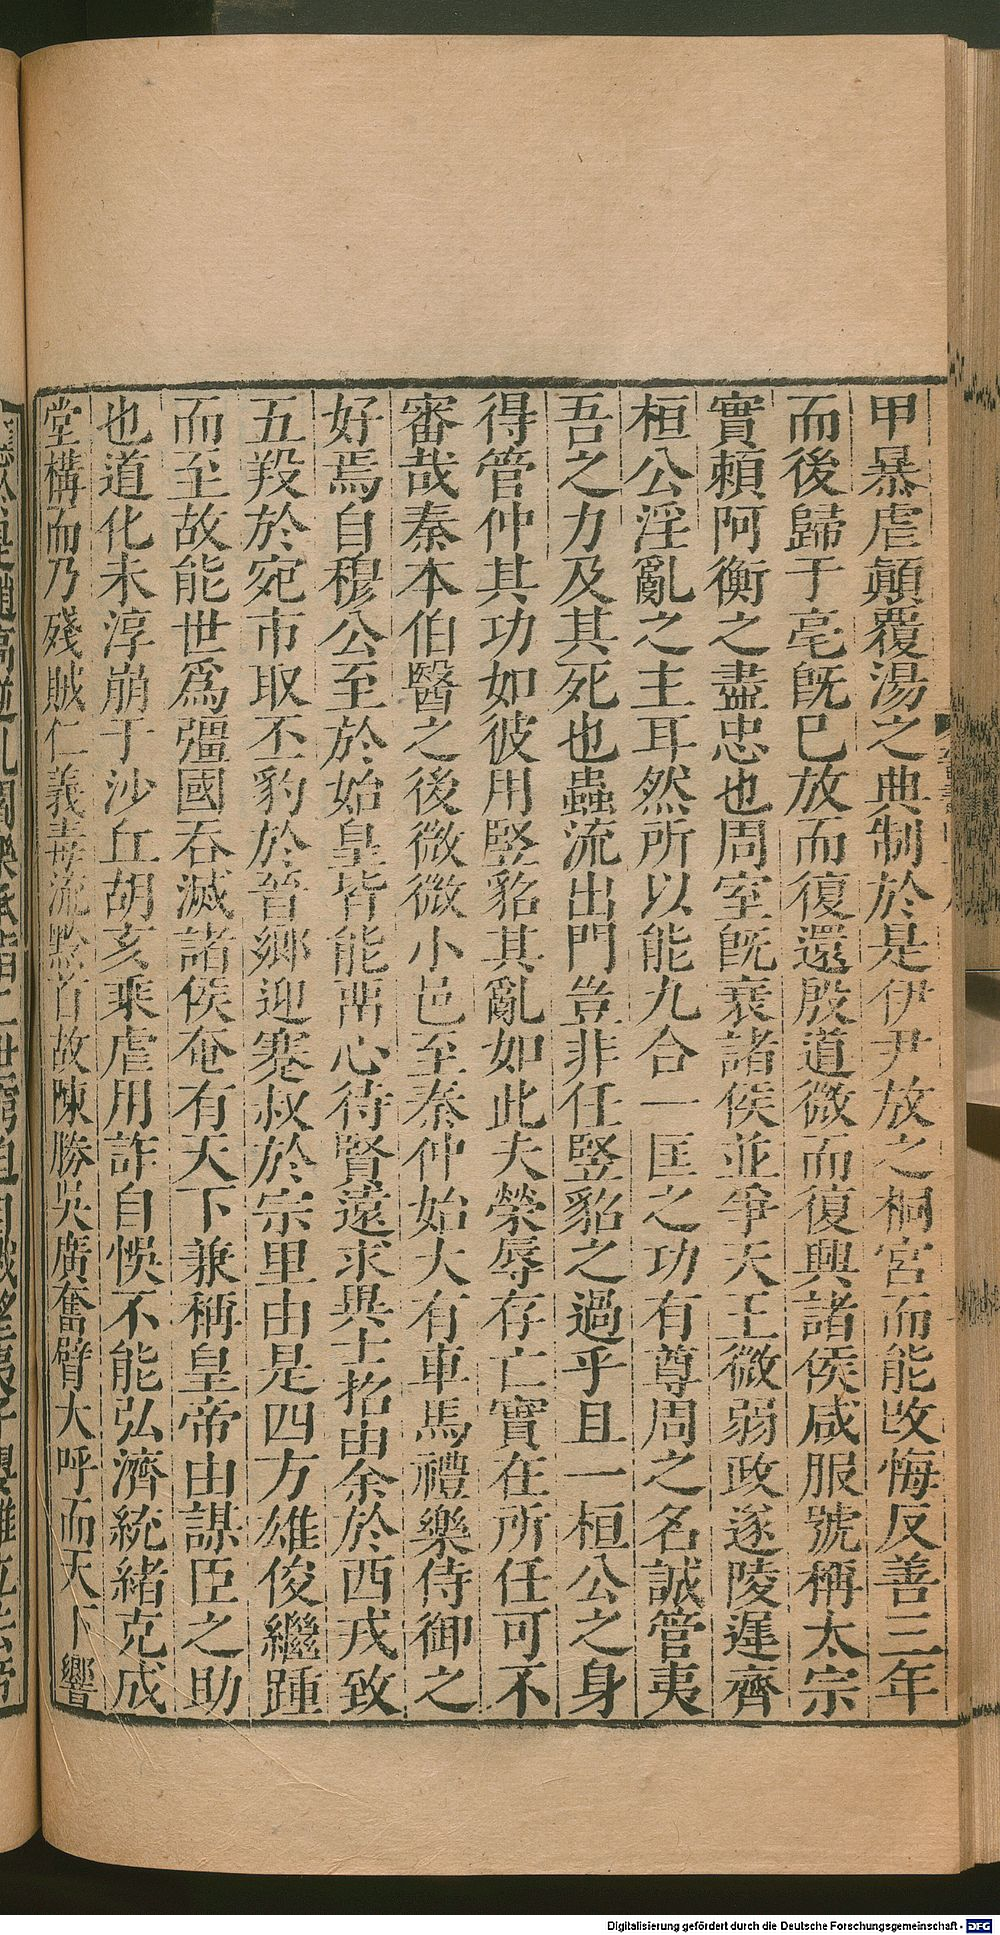 甲暴虐顛覆湯之典制於是伊尹放之桐宮而能改悔反善三年
而後歸于亳旣巳放而復還殷道微而復興諸侯咸服號稱太宗
實賴阿衡之盡忠也周室旣衰諸侯並爭天王微弱政遂陵遲齊
桓公淫亂之主耳然所以能九合一匡之功有尊周之名誠管夷
吾之力及其死也蟲流出門豈非任豎貂之過乎且一桓公之身
得管仲其功如彼用豎貂其亂如此夫榮辱存亡實在所任可不
審哉秦本伯醫之後微微小邑至秦仲始大有車馬禮樂侍御之
好焉自穆公至於始皇皆能㽞心待賢遠求異士招由余於西戎致
五羖於宛市取丕豹於晉鄉迎蹇叔於宗里由是四方雄俊繼踵
而至故能世爲彊國吞滅諸侯奄有天下兼稱皇帝由謀臣之助
也道化未淳崩于沙丘胡亥乘虐用詐自悞不能弘濟統緒克成
堂構而乃殘賊仁義毒流黔首故陳勝吳廣奮臂大呼而天下響
Digitalisierung gefördert durch die Deutsche Forschungsgemeinschaft - DFG